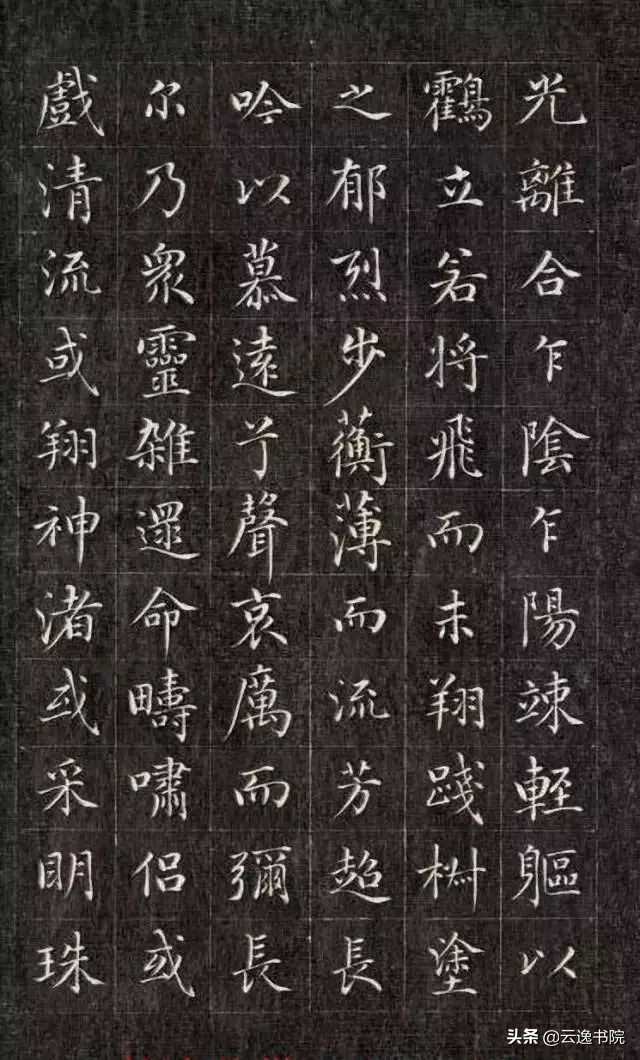 光離合乍陰乍陽竦輕軀以
鸖立若将飛而未翔踐椒塗
之郁烈步蘅薄而流芳超長
吟以慕遠兮聲哀厲而彌長
尔乃衆靈雜遝命疇嘯侶或
戲清流或翔神渚或采明珠
头条 @云逸书院